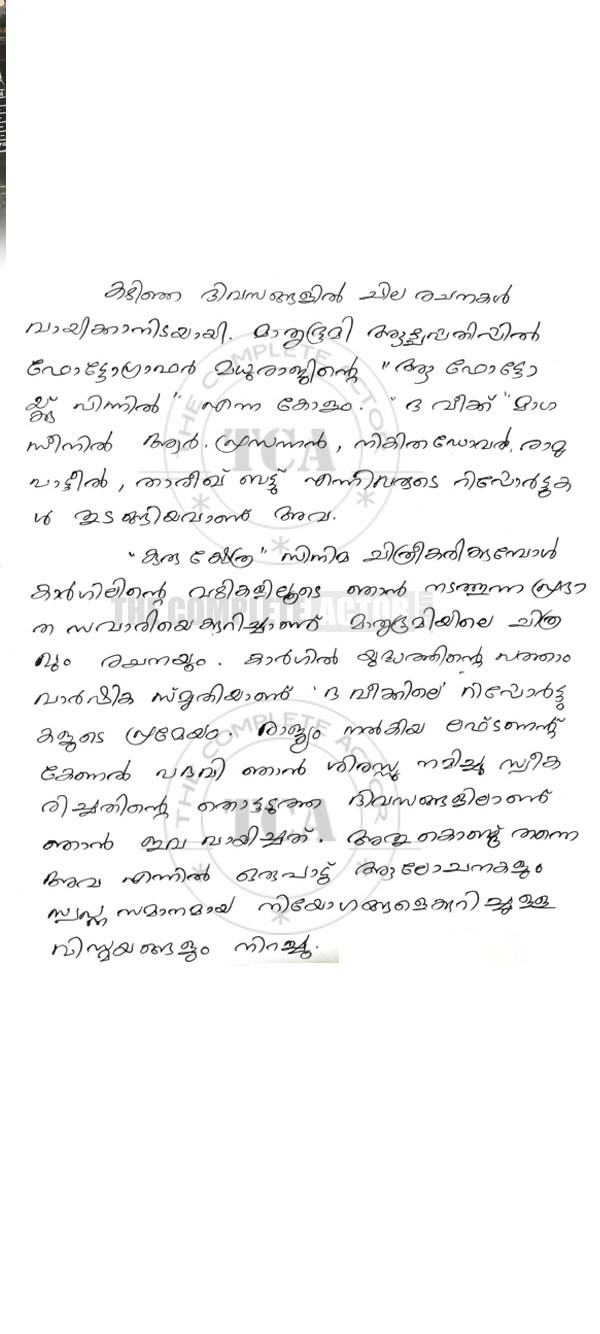 കഴിഞ്ഞ ദിവസങ്ങളിൽ ചില രചനകൾ
വായിക്കാനിടയായി. മാതൃഭൂമി ആഴ്ചപ്പതിപ്പിൽ
ഫോട്ടോഗ്രാഫർ മധുരാജിന്റെ "ആ ഫോട്ടോ
യ്ക്ക് പിന്നിൽ" എന്ന കോളം. "ദ വീക്ക്" മാഗ
സീനിൽ ആർ. പ്രസന്നൻ, നികിത ഡോവൽ, രാമു
പാട്ടീൽ, താരീഖ് ബട്ട് എന്നിവരുടെ റിപ്പോർട്ടുക
ൾ തുടങ്ങിയവാണ് അവ.
"കുരുക്ഷേത്ര" സിനിമ ചിത്രീകരിക്കുമ്പോൾ
കാർഗിലിന്റെ വഴികളിലൂടെ ഞാൻ നടത്തുന്ന പ്രഭാ
ത സവാരിയെക്കുറിച്ചാണ് മാതൃഭൂമിയിലെ ചിത്ര
വും രചനയും. കാർഗിൽ യുദ്ധത്തിന്റെ പത്താം
വാർഷിക സ്മൃതിയാണ് 'ദ വീക്കിലെ' റിപ്പോർട്ടു
കളുടെ പ്രമേയം. രാജ്യം നൽകിയ ലഫ്ടണന്റ്
കേണൽ പദവി ഞാൻ ശിരസ്സു നമിച്ചു സ്വീക
രിച്ചതിന്റെ തൊട്ടടുത്ത ദിവസങ്ങളിലാണ്
ഞാൻ ഇവ വായിച്ചത്. അതു കൊണ്ടു തന്നെ
അവ എന്നിൽ ഒരുപാട് ആലോചനകളും
സ്വപ്ന സമാനമായ നിയോഗങ്ങളെക്കുറിച്ചുള്ള
വിസ്മയങ്ങളും നിറച്ചു.
THE COMPLETE ACTOR
TCA
THE COMPLETE ACTOR
THE COMPLETE ACTOR
TCA